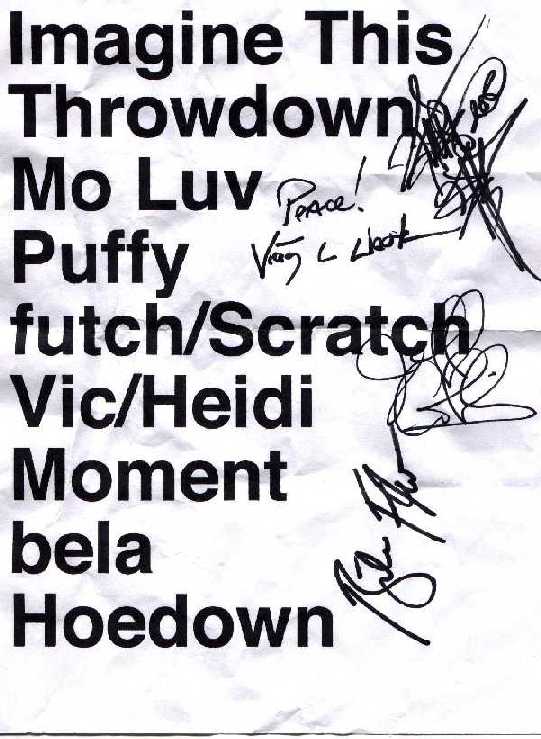 Imagine This
Throwdown
Mo Luv
Peace!
Puffy
futch/Scratch
Vic/Heidi
Moment
bela
Hoedown